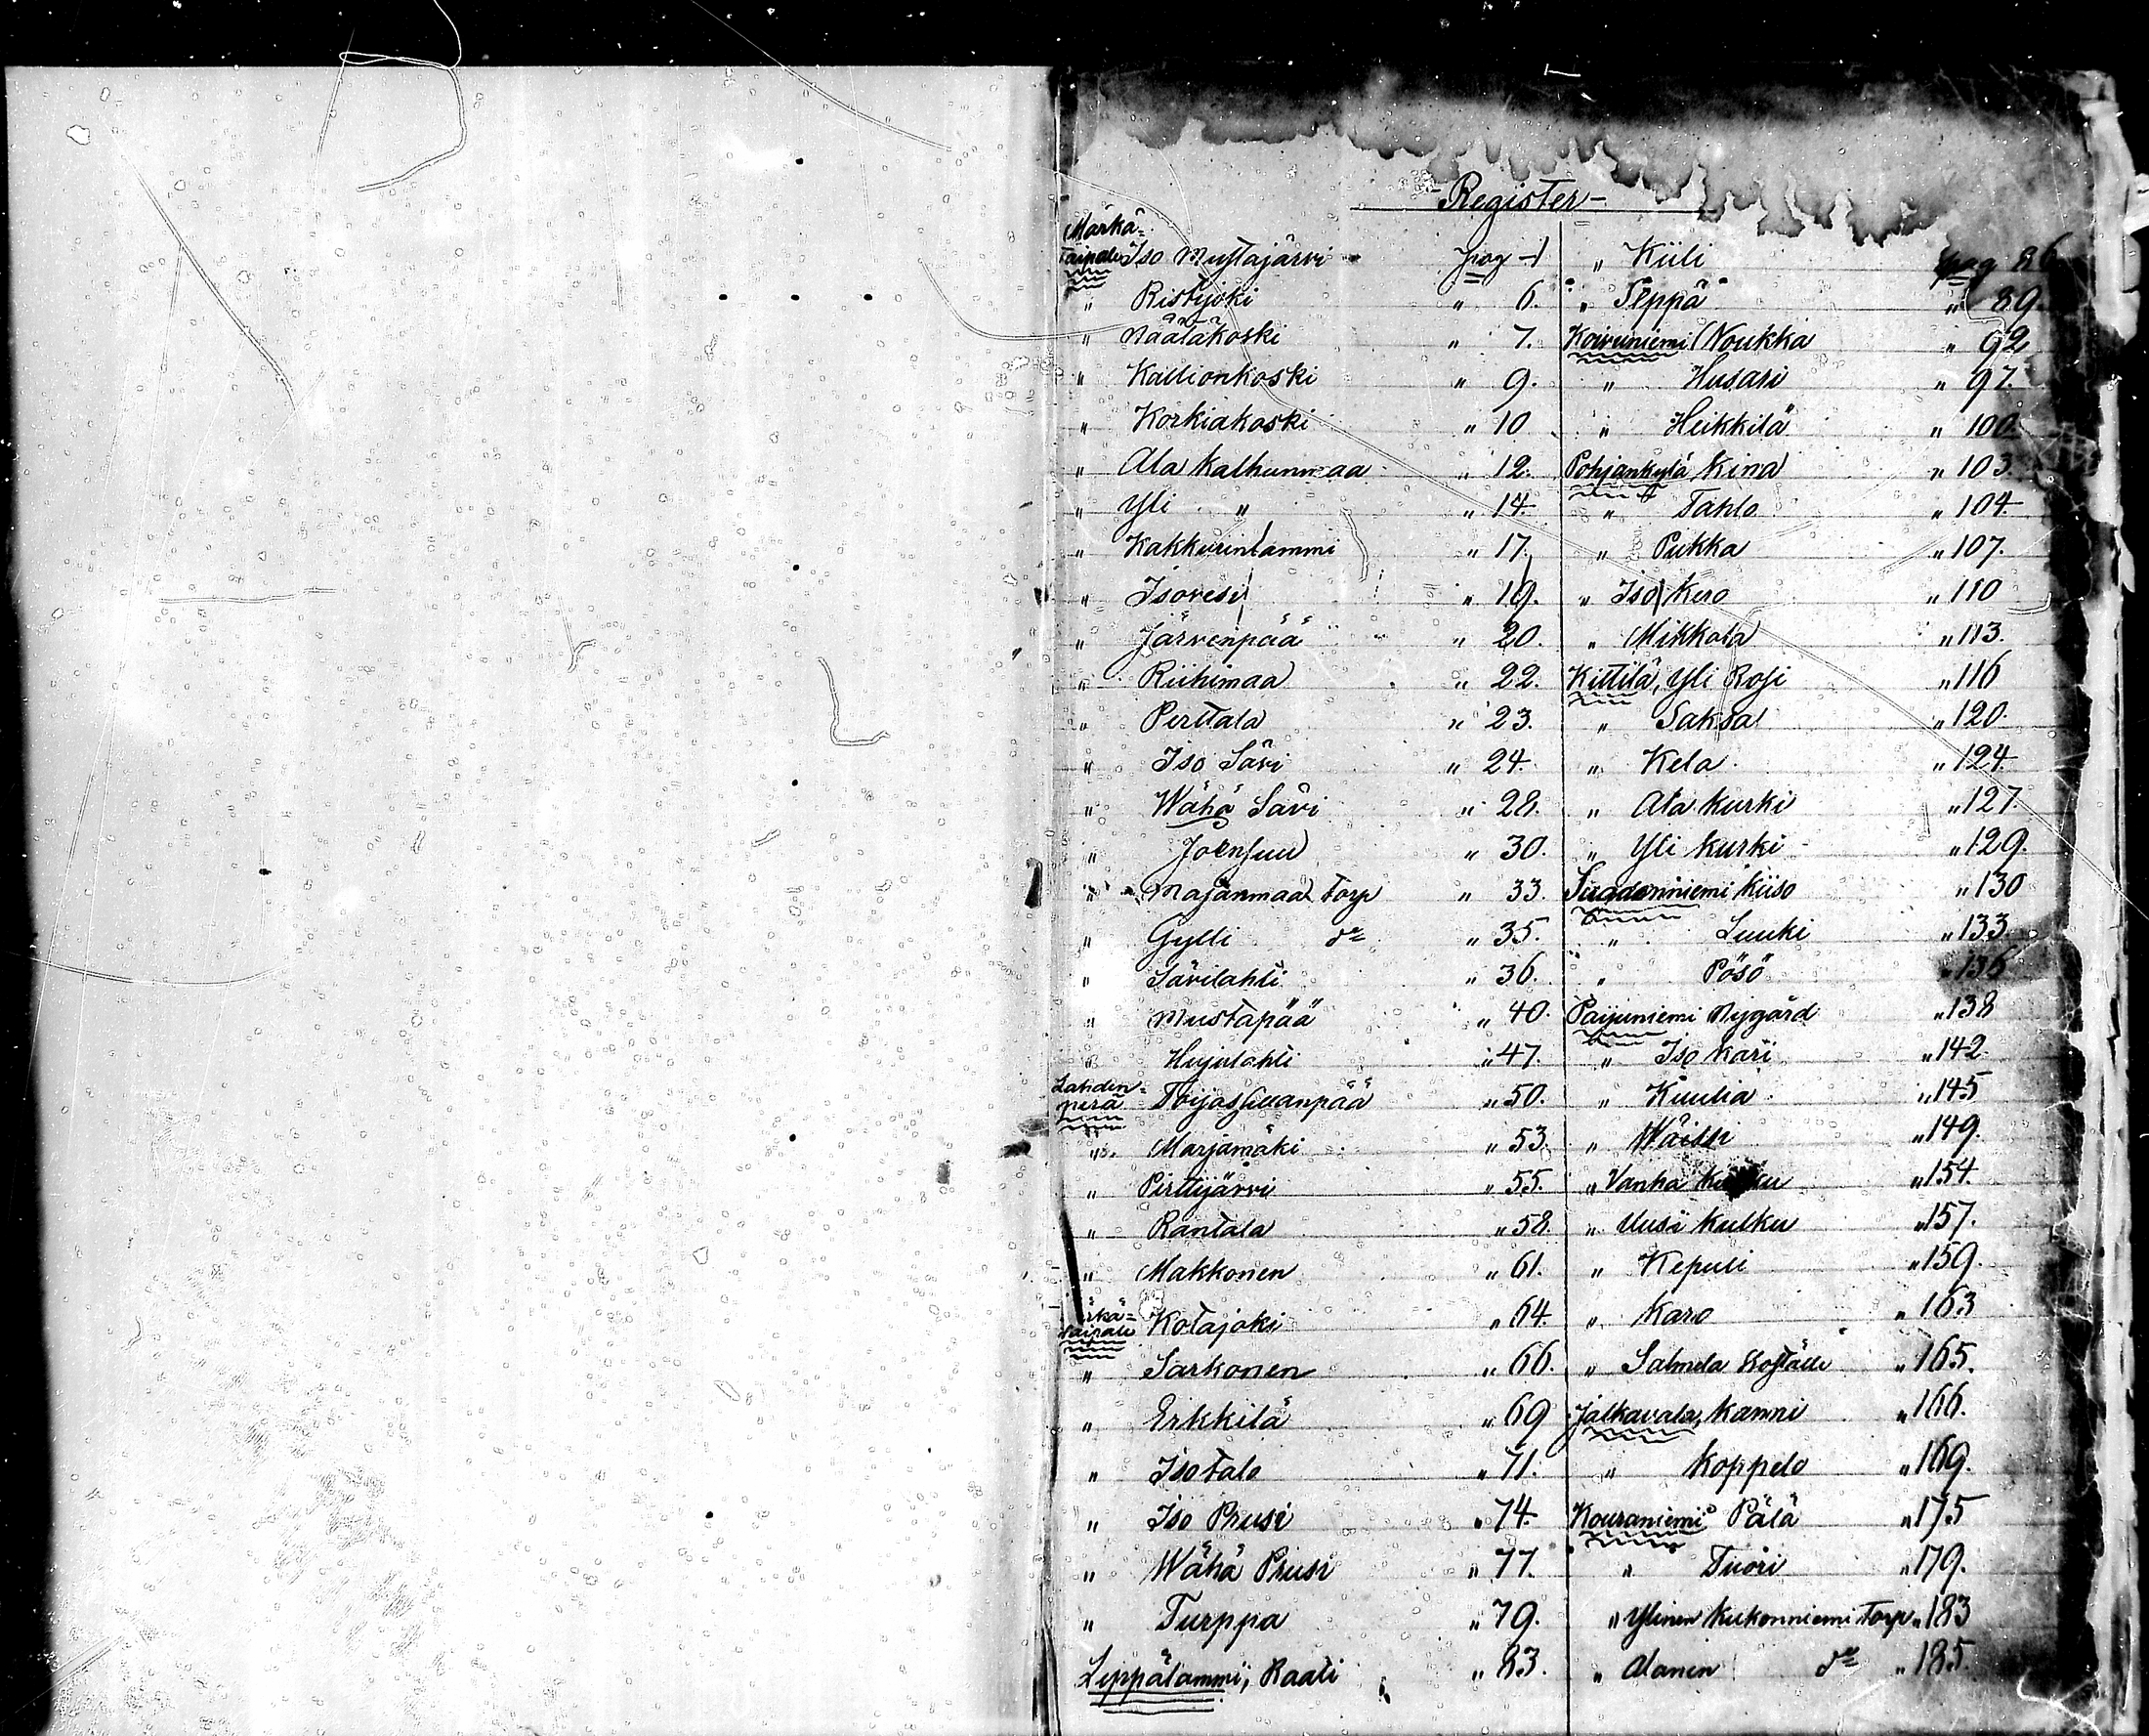 - Register -
Märkä-
taipale Iso Mustajärvi pag 1
" Ristijoki " 6.
" Näätäkoski " 7.
" Kallionkoski " 9.
" Korkiakoski " 10
" Ala Kalhunmaa " 12.
" Yli " " 14.
" Kakkurinlammi " 17.
" Isovesi " 19.
" Järvenpää " 20.
" Riihimaa " 22.
" Perttala " 23.
" Iso Sävi " 24.
" Wähä Sävi " 28.
" Joensuu " 30.
" Majanmaa Torp " 33.
" Gylli do " 35.
" Sävilahti " 36.
" Mustapää " 40.
" Hujulahti " 47.
Lahden-
perä Toijosluanpää " 50.
" Marjamäki " 53.
" Perttijärvi " 55.
" Rantala " 58.
" Makkonen " 61.
taipale Kotajoki " 64.
" Sarkonen " 66.
" Erkkilä " 69
" Isotalo " 71.
" Iso Prusi " 74.
" Wähä Prusi " 77.
" Turppa " 79.
Leppälammi, Raati " 83.
" Kiili pag 86
" Seppä " 89.
Koivuniemi Noukka " 92
" Husari " 97.
" Heikkilä " 100.
Pohjankylä Kina " 103.
" Tahlo " 104.
" Pukka " 107.
" Iso Kero " 110
" Mikkola " 113.
Kittilä, Yli Rosi " 116
" Saksa " 120.
" Kela " 124.
" Ala Kurki " 127
" Yli Kurki " 129.
Suodenniemi Kiiso " 130
" Luuki " 133.
" Pösö " 136
Paijuniemi Nygård " 138
" Iso Kari " 142.
" Kuulia " 145
" Wäissi " 149.
" Vanha Kulku " 154.
" Uusi Kulku " 157.
" Kepuli " 159.
" Karo " 163
" Salmela Boställe " 165.
Jalkavala, Kanni " 166.
" Koppelo " 169.
Kouraniemi Pälä " 175
" Tuori " 179.
" Ylinen Kukonniemi Torp " 183
" Alanen do " 185.